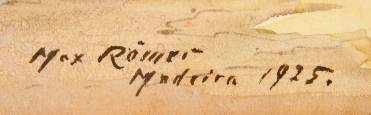 Max Römer
Madeira 1925.